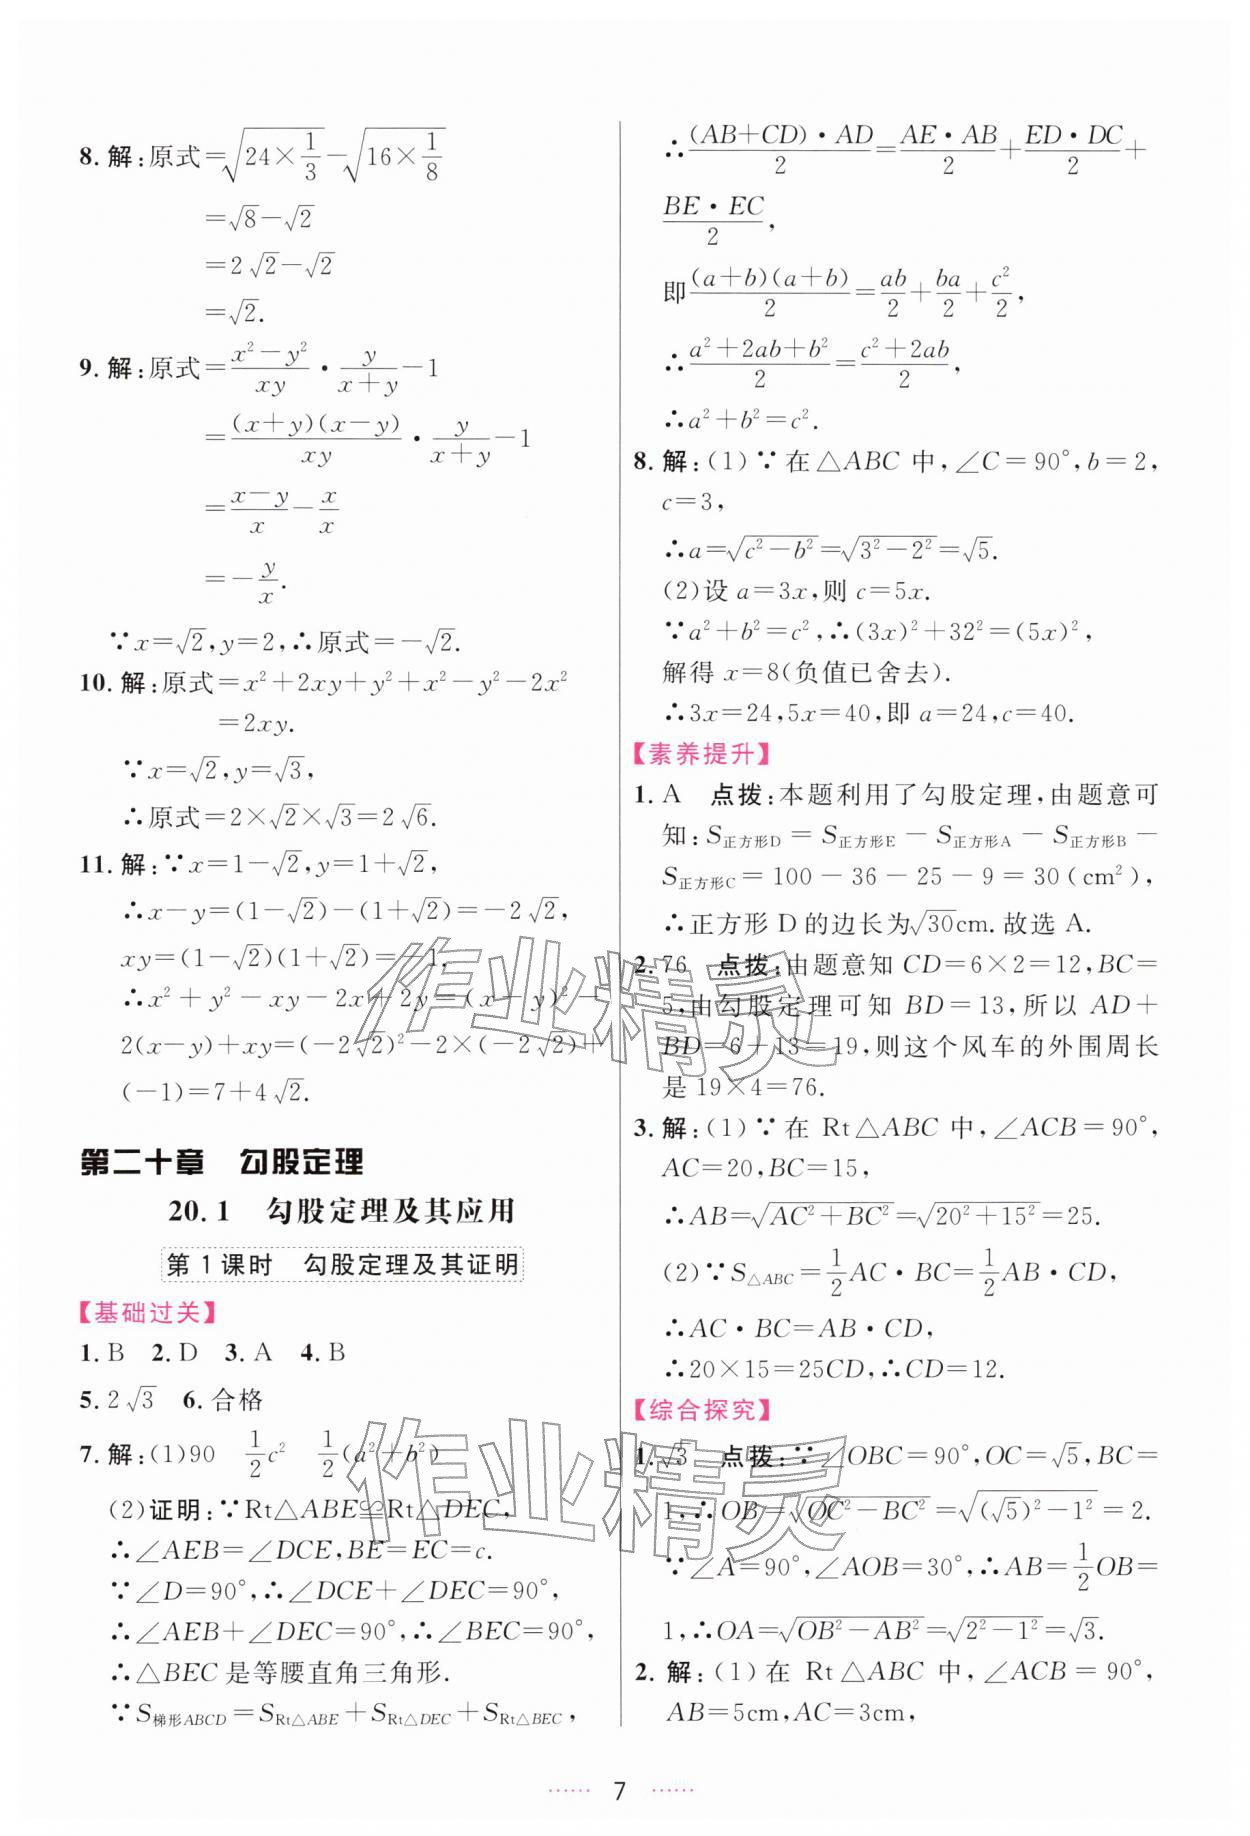 8.解:原式=√(24×1/3)-√(16×1/8)
=√8-√2
=2√2-√2
=√2.
9.解:原式=(x²-y²)/xy·y/(x+y)-1
=(x+y)(x-y)/xy·y/(x+y)-1
=(x-y)/x-x/x
=-y/x.
∵x=√2,y=2,∴原式=-√2.
10.解:原式=x²+2xy+y²+x²-y²-2x²
=2xy.
∵x=√2,y=√3,
∴原式=2×√2×√3=2√6.
11.解:∵x=1-√2,y=1+√2,
∴x-y=(1-√2)-(1+√2)=-2√2,
xy=(1-√2)(1+√2)=-1,
∴x²+y²-xy-2x+2y=(x-y)²-
2(x-y)+xy=(-2√2)²-2×(-2√2)+
(-1)=7+4√2.
第二十章 勾股定理
20.1 勾股定理及其应用
第1课时 勾股定理及其证明
【基础过关】
1.B 2.D 3.A 4.B
5.2√3 6.合格
7.解:(1)90 1/2c² 1/2(a²+b²)
(2)证明:∵Rt△ABE≌Rt△DEC,
∴∠AEB=∠DCE,BE=EC=c.
∵∠D=90°,∴∠DCE+∠DEC=90°,
∴∠AEB+∠DEC=90°,∴∠BEC=90°,
∴△BEC是等腰直角三角形.
∵S梯形ABCD=SRt△ABE+SRt△DEC+SRt△BEC,
∴(AB+CD)·AD/2=AE·AB/2+ED·DC/2+
BE·EC/2,
即(a+b)(a+b)/2=ab/2+ba/2+c²/2,
∴(a²+2ab+b²)/2=(c²+2ab)/2,
∴a²+b²=c².
8.解:(1)∵在△ABC中,∠C=90°,b=2,
c=3,
∴a=√(c²-b²)=√(3²-2²)=√5.
(2)设a=3x,则c=5x.
∵a²+b²=c²,∴(3x)²+32²=(5x)²,
解得x=8(负值已舍去).
∴3x=24,5x=40,即a=24,c=40.
【素养提升】
1.A 点拨:本题利用了勾股定理,由题意可
知:S正方形D=S正方形E-S正方形A-S正方形B-
S正方形C=100-36-25-9=30(cm²),
∴正方形D的边长为√30cm.故选A.
2.76 点拨:由题意知CD=6×2=12,BC=
5,由勾股定理可知BD=13,所以AD+
BD=6+13=19,则这个风车的外围周长
是19×4=76.
3.解:(1)∵在Rt△ABC中,∠ACB=90°,
AC=20,BC=15,
∴AB=√(AC²+BC²)=√(20²+15²)=25.
(2)∵S△ABC=1/2AC·BC=1/2AB·CD,
∴AC·BC=AB·CD,
∴20×15=25CD,∴CD=12.
【综合探究】
1.√3 点拨:∵∠OBC=90°,OC=√5,BC=
1,∴OB=√(OC²-BC²)=√((√5)²-1²)=2.
∵∠A=90°,∠AOB=30°,∴AB=1/2OB=
1,∴OA=√(OB²-AB²)=√(2²-1²)=√3.
2.解:(1)在Rt△ABC中,∠ACB=90°,
AB=5cm,AC=3cm,
作业精灵
作业精灵
7